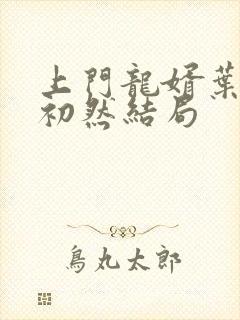 上門龍婿葉
初然結局
鳥丸太郎